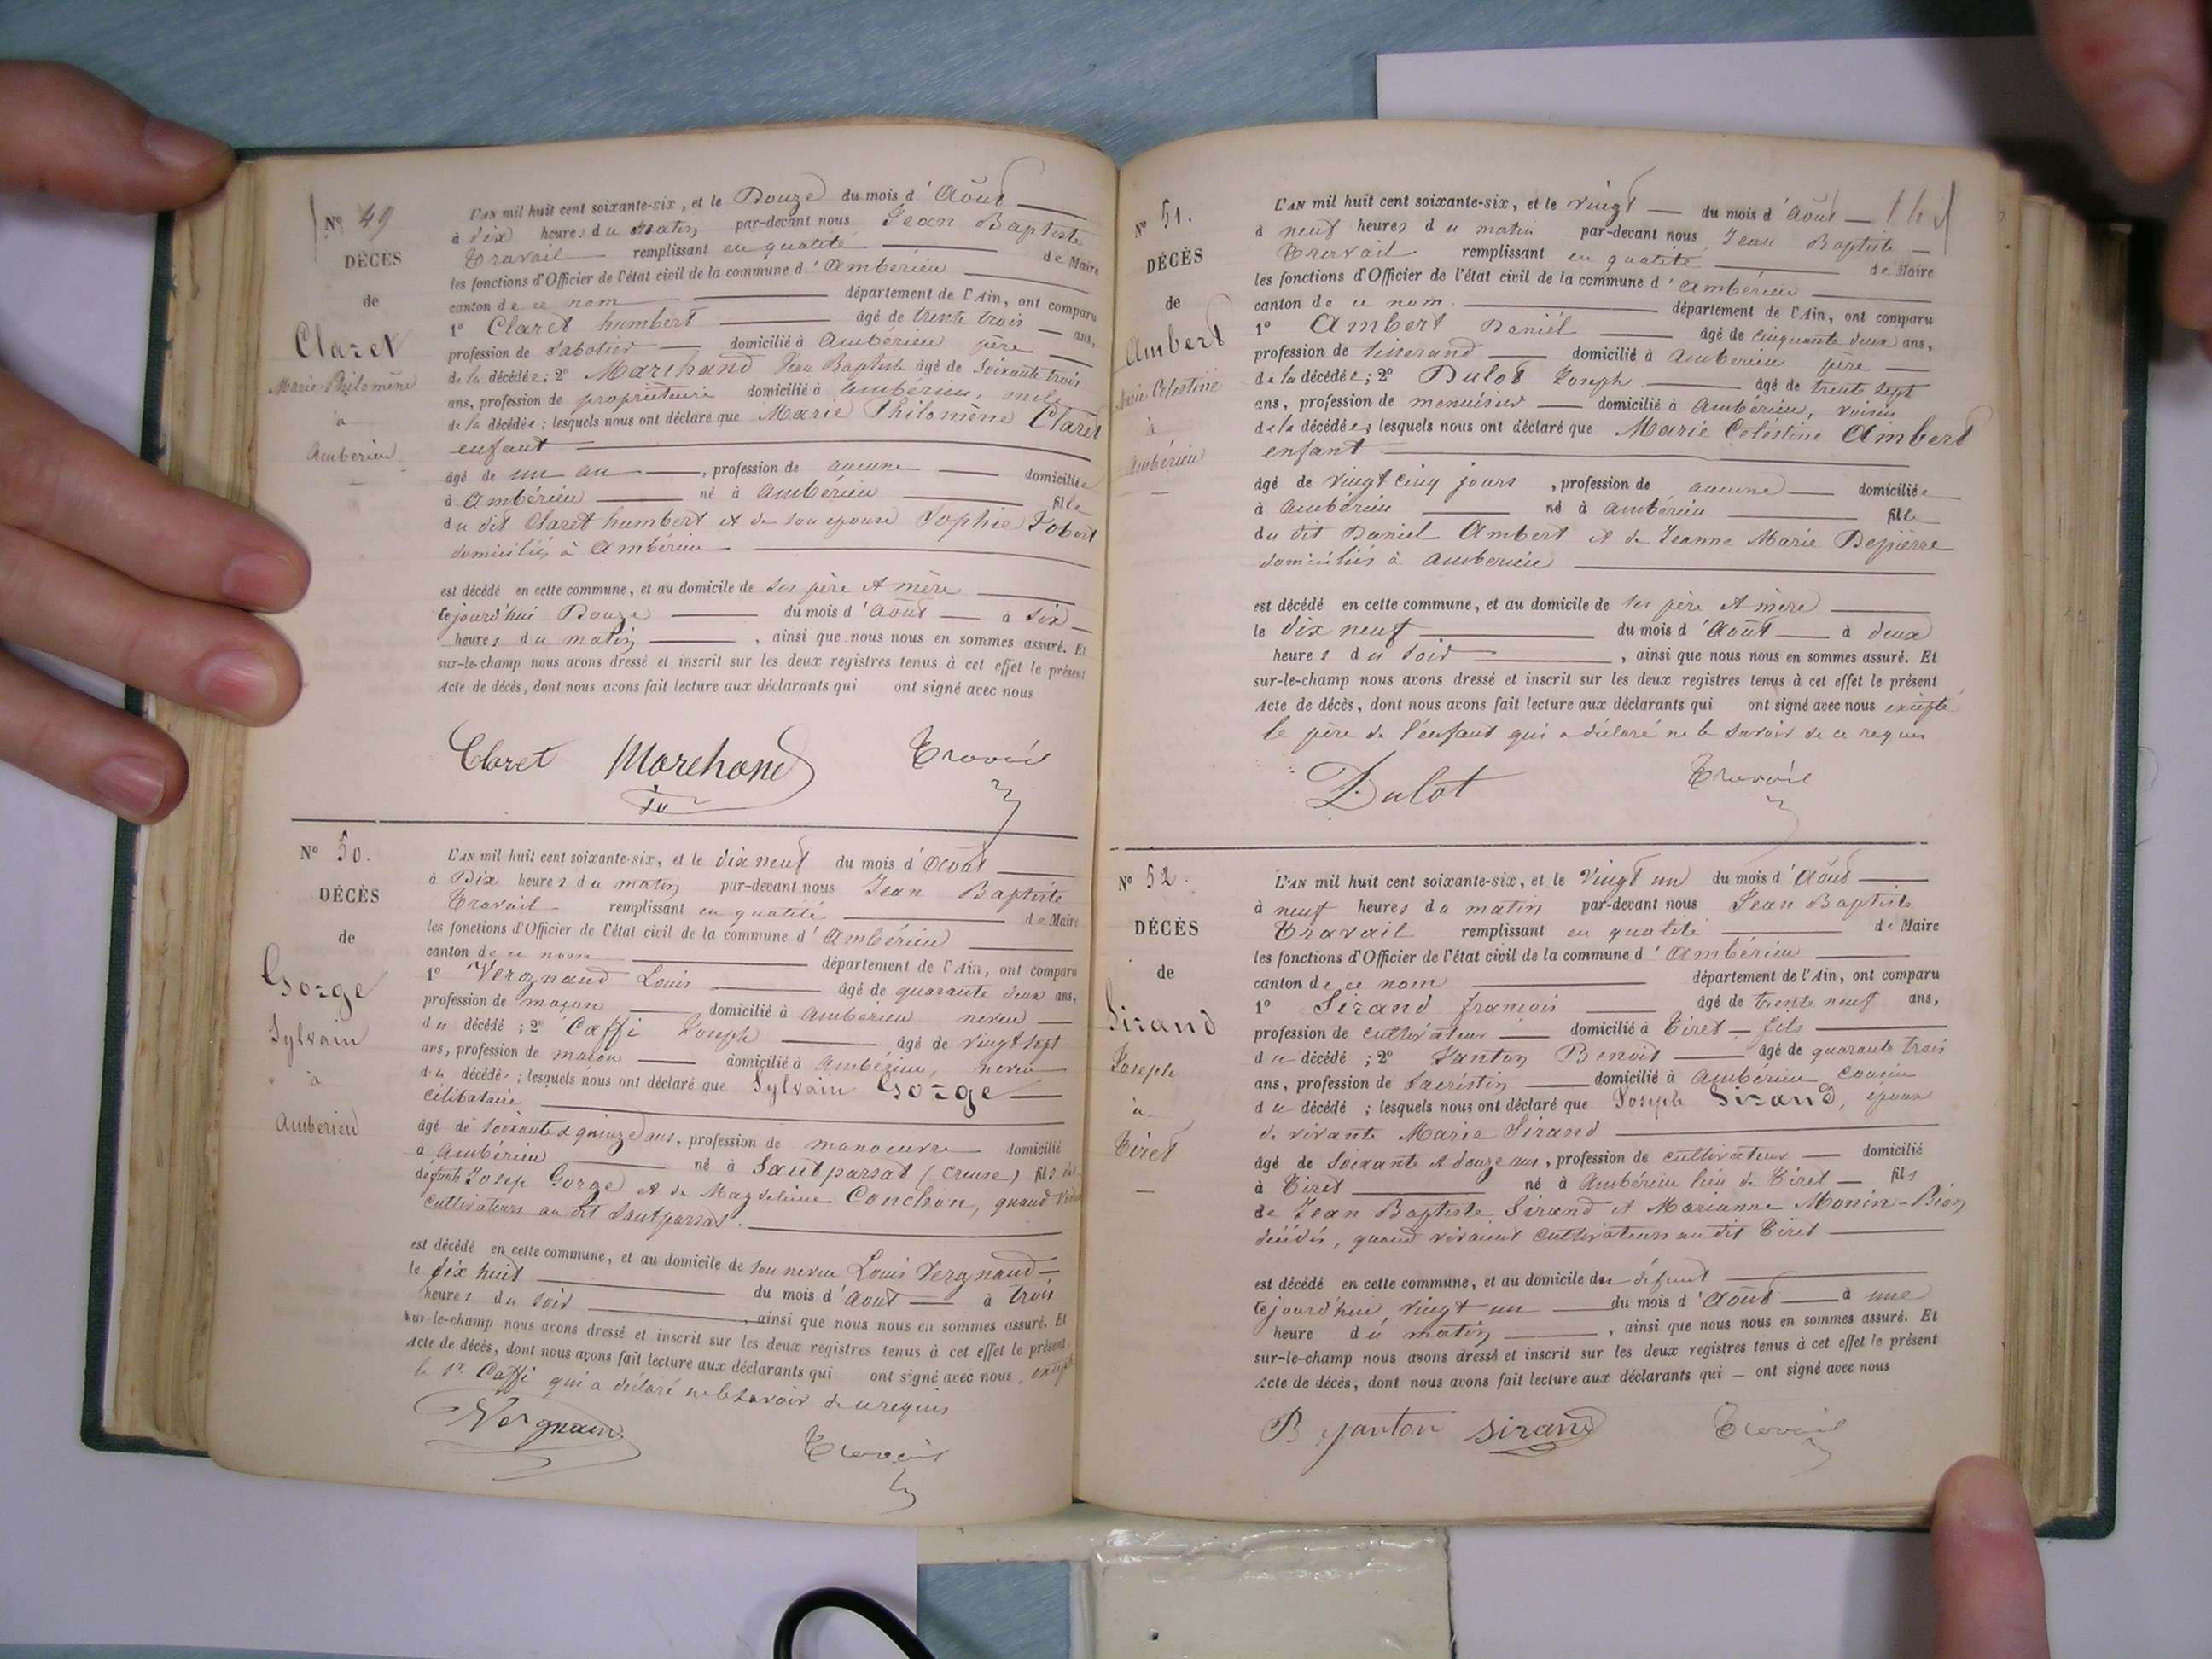 Nº 49
DÉCÈS
de
Claret
Marie Philomène
à
Ambérieu
L'AN mil huit cent soixante-six, et le Douze du mois d'Août
à dix heures du matin par-devant nous Jean Baptiste
Travail remplissant en qualité de Maire
les fonctions d'Officier de l'état civil de la commune d'Ambérieu
canton de ce nom département de l'Ain, ont comparu
1º Claret humbert âgé de trente trois ans,
profession de Sabotier domicilié à Ambérieu père
de la décédée; 2º Marchand Jean Baptiste âgé de Soixante trois
ans, profession de propriétaire domicilié à Ambérieu,
de la décédée; lesquels nous ont déclaré que Marie Philomène Claret
enfant
âgé de un an, profession de aucune domiciliée
à Ambérieu né à Ambérieu fille
du dit Claret humbert et de son epouse Sophie Jobert
domiciliés à Ambérieu
est décédé en cette commune, et au domicile de ses père et mère
cejourd'hui Douze du mois d'Août à six
heures du matin, ainsi que nous nous en sommes assuré. Et
sur-le-champ nous avons dressé et inscrit sur les deux registres tenus à cet effet le présent
Acte de décès, dont nous avons fait lecture aux déclarants qui ont signé avec nous
Claret Marchand Travail
Nº 50.
DÉCÈS
de
Gorge
Sylvain
à
Amberieu
L'AN mil huit cent soixante-six, et le dix neuf du mois d'Août
à Dix heures du matin par-devant nous Jean Baptiste
Travail remplissant en qualité de Maire
les fonctions d'Officier de l'état civil de la commune d'Ambérieu
canton de ce nom département de l'Ain, ont comparu
1º Vergnaud Louis âgé de quarante deux ans,
profession de maçon domicilié à Ambérieu neveu
du décédé; 2º Caffi Joseph âgé de vingt sept
ans, profession de maçon domicilié à Ambérieu, neveu
du décédé; lesquels nous ont déclaré que Sylvain Gorge
célibataire
âgé de soixante quinze ans, profession de manoeuvre domicilié
à Ambérieu né à Sautparsat (Creuse) fils de
défunts Josep Gorge et de Magdeleine Conchon, quand
cultivateurs au dit Sautparsat.
est décédé en cette commune, et au domicile de son neveu Louis Vergnaud
le dix huit du mois d'Août à trois
heures du soir, ainsi que nous nous en sommes assuré. Et
sur-le-champ nous avons dressé et inscrit sur les deux registres tenus à cet effet le présent
Acte de décès, dont nous avons fait lecture aux déclarants qui ont signé avec nous, excepté
le Sr. Caffi qui a déclaré ne le savoir de ce requis
Vergnaud Travail
Nº 51.
DÉCÈS
de
Ambert
Marie Célestine
à
Ambérieu
L'AN mil huit cent soixante-six, et le vingt du mois d'Août
à neuf heures du matin par-devant nous Jean Baptiste
Travail remplissant en qualité de Maire
les fonctions d'Officier de l'état civil de la commune d'Ambérieu
canton de ce nom. département de l'Ain, ont comparu
1º Ambert Daniel âgé de cinquante deux ans,
profession de tisserand domicilié à Amberieu père
de la décédée; 2º Dulot Joseph âgé de trente sept
ans, profession de menuisier domicilié à Ambérieu, voisin
de la décédée, lesquels nous ont déclaré que Marie Celéstine Ambert
enfant
âgé de vingt cinq jours, profession de aucune domiciliée
à Ambérieu né à Ambérieu fille
du dit Daniel Ambert et de Jeanne Marie Depierre
domiciliés à Amberieu
est décédé en cette commune, et au domicile de ses père et mère
le dix neuf du mois d'Août à deux
heures du soir, ainsi que nous nous en sommes assuré. Et
sur-le-champ nous avons dressé et inscrit sur les deux registres tenus à cet effet le présent
Acte de décès, dont nous avons fait lecture aux déclarants qui ont signé avec nous excepté
le père de l'enfant qui a déclaré ne le savoir de ce requis
Dulot Travail
Nº 52.
DÉCÈS
de
Sirand
Joseph
à
Tiret
L'AN mil huit cent soixante-six, et le vingt un du mois d'Août
à neuf heures du matin par-devant nous Jean Baptiste
Travail remplissant en qualité de Maire
les fonctions d'Officier de l'état civil de la commune d'Ambérieu
canton de ce nom département de l'Ain, ont comparu
1º Sirand françois âgé de trente neuf ans,
profession de cultivateur domicilié à Tiret fils
du décédé; 2º Janton Benoit âgé de quarante trois
ans, profession de Sacristin domicilié à Ambérieu cousin
du décédé; lesquels nous ont déclaré que Joseph Sirand, époux
de vivante Marie Sirand
âgé de soixante et douze ans, profession de cultivateur domicilié
à Tiret né à Ambérieu lieu de Tiret fils
de Jean Baptiste Sirand et Marianne Monin-Bion
décédés, quand vivaient cultivateurs au dit Tiret
est décédé en cette commune, et au domicile du défunt
cejourd'hui vingt un du mois d'Août à une
heure du matin, ainsi que nous nous en sommes assuré. Et
sur-le-champ nous avons dressé et inscrit sur les deux registres tenus à cet effet le présent
Acte de décès, dont nous avons fait lecture aux déclarants qui ont signé avec nous
B janton Sirand Travail